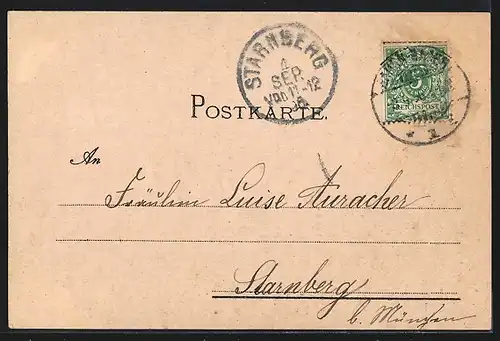 STARNBERG
4
SEP.
Vor. 11-12
POSTKARTE.
5
REICHSPOST
* 1
An
Fräulein Luise Auracher
Starnberg
b. München